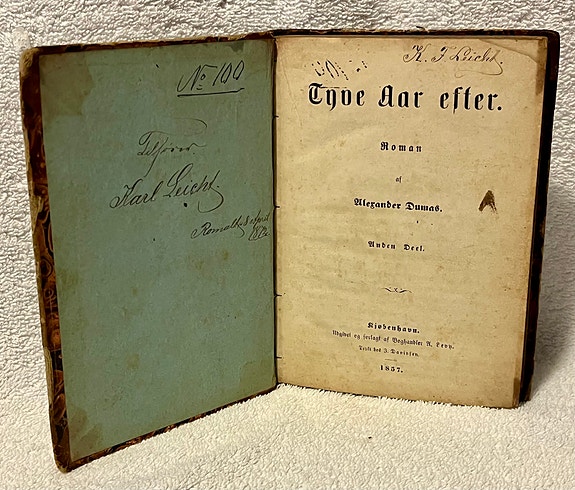 No 100
Tilhører
Karl Leicht.
K. F. Leicht.
Tyve Aar efter.
Roman
af
Alexander Dumas.
Anden Deel.
Kjøbenhavn.
Udgivet og forlagt af Boghandler A. Levy.
Trykt hos J. Davidsen.
1857.